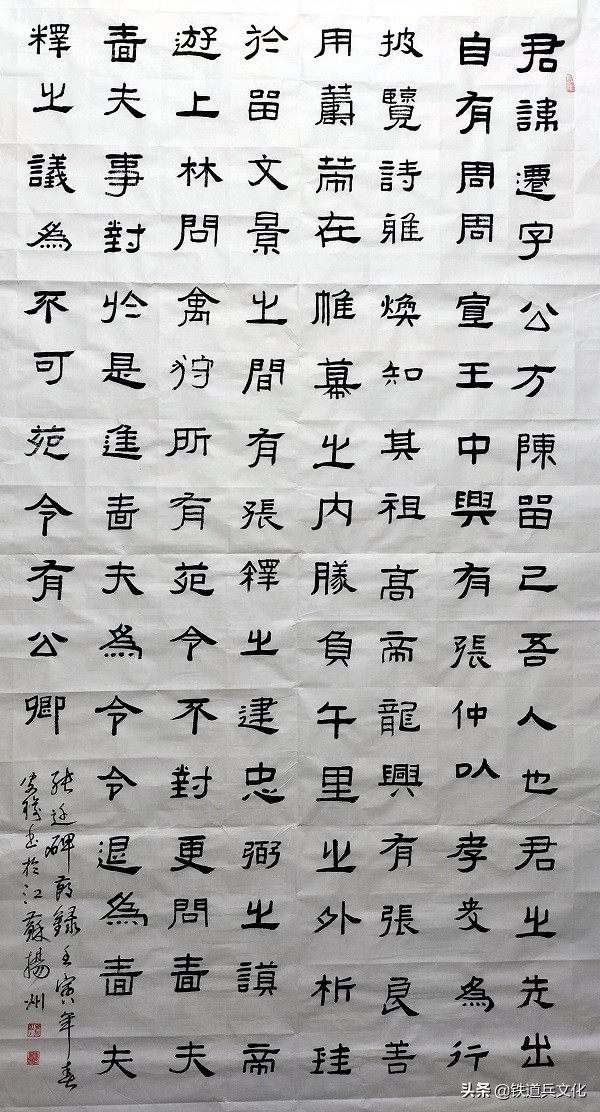 君諱遷字公方陳留己吾人也君之先出
自有周周宣王中興有張仲以孝友為行
披覽詩雅煥知其祖高帝龍興有張良善
用籌策在帷幕之內勝負午里之外析珪
於留文景之間有張釋之建忠弼之謨帝
遊上林問禽狩所有苑令不對更問嗇夫
嗇夫事對於是進嗇夫為令令退為嗇夫
釋之議為不可苑令有公卿
張迁碑節錄壬寅年春
書於江蘇揚州
头条 @铁道兵文化